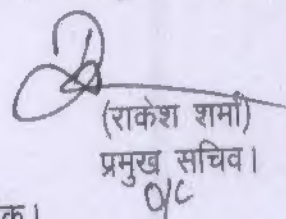 (राकेश शर्मा)
प्रमुख सचिव।
o/c
क।